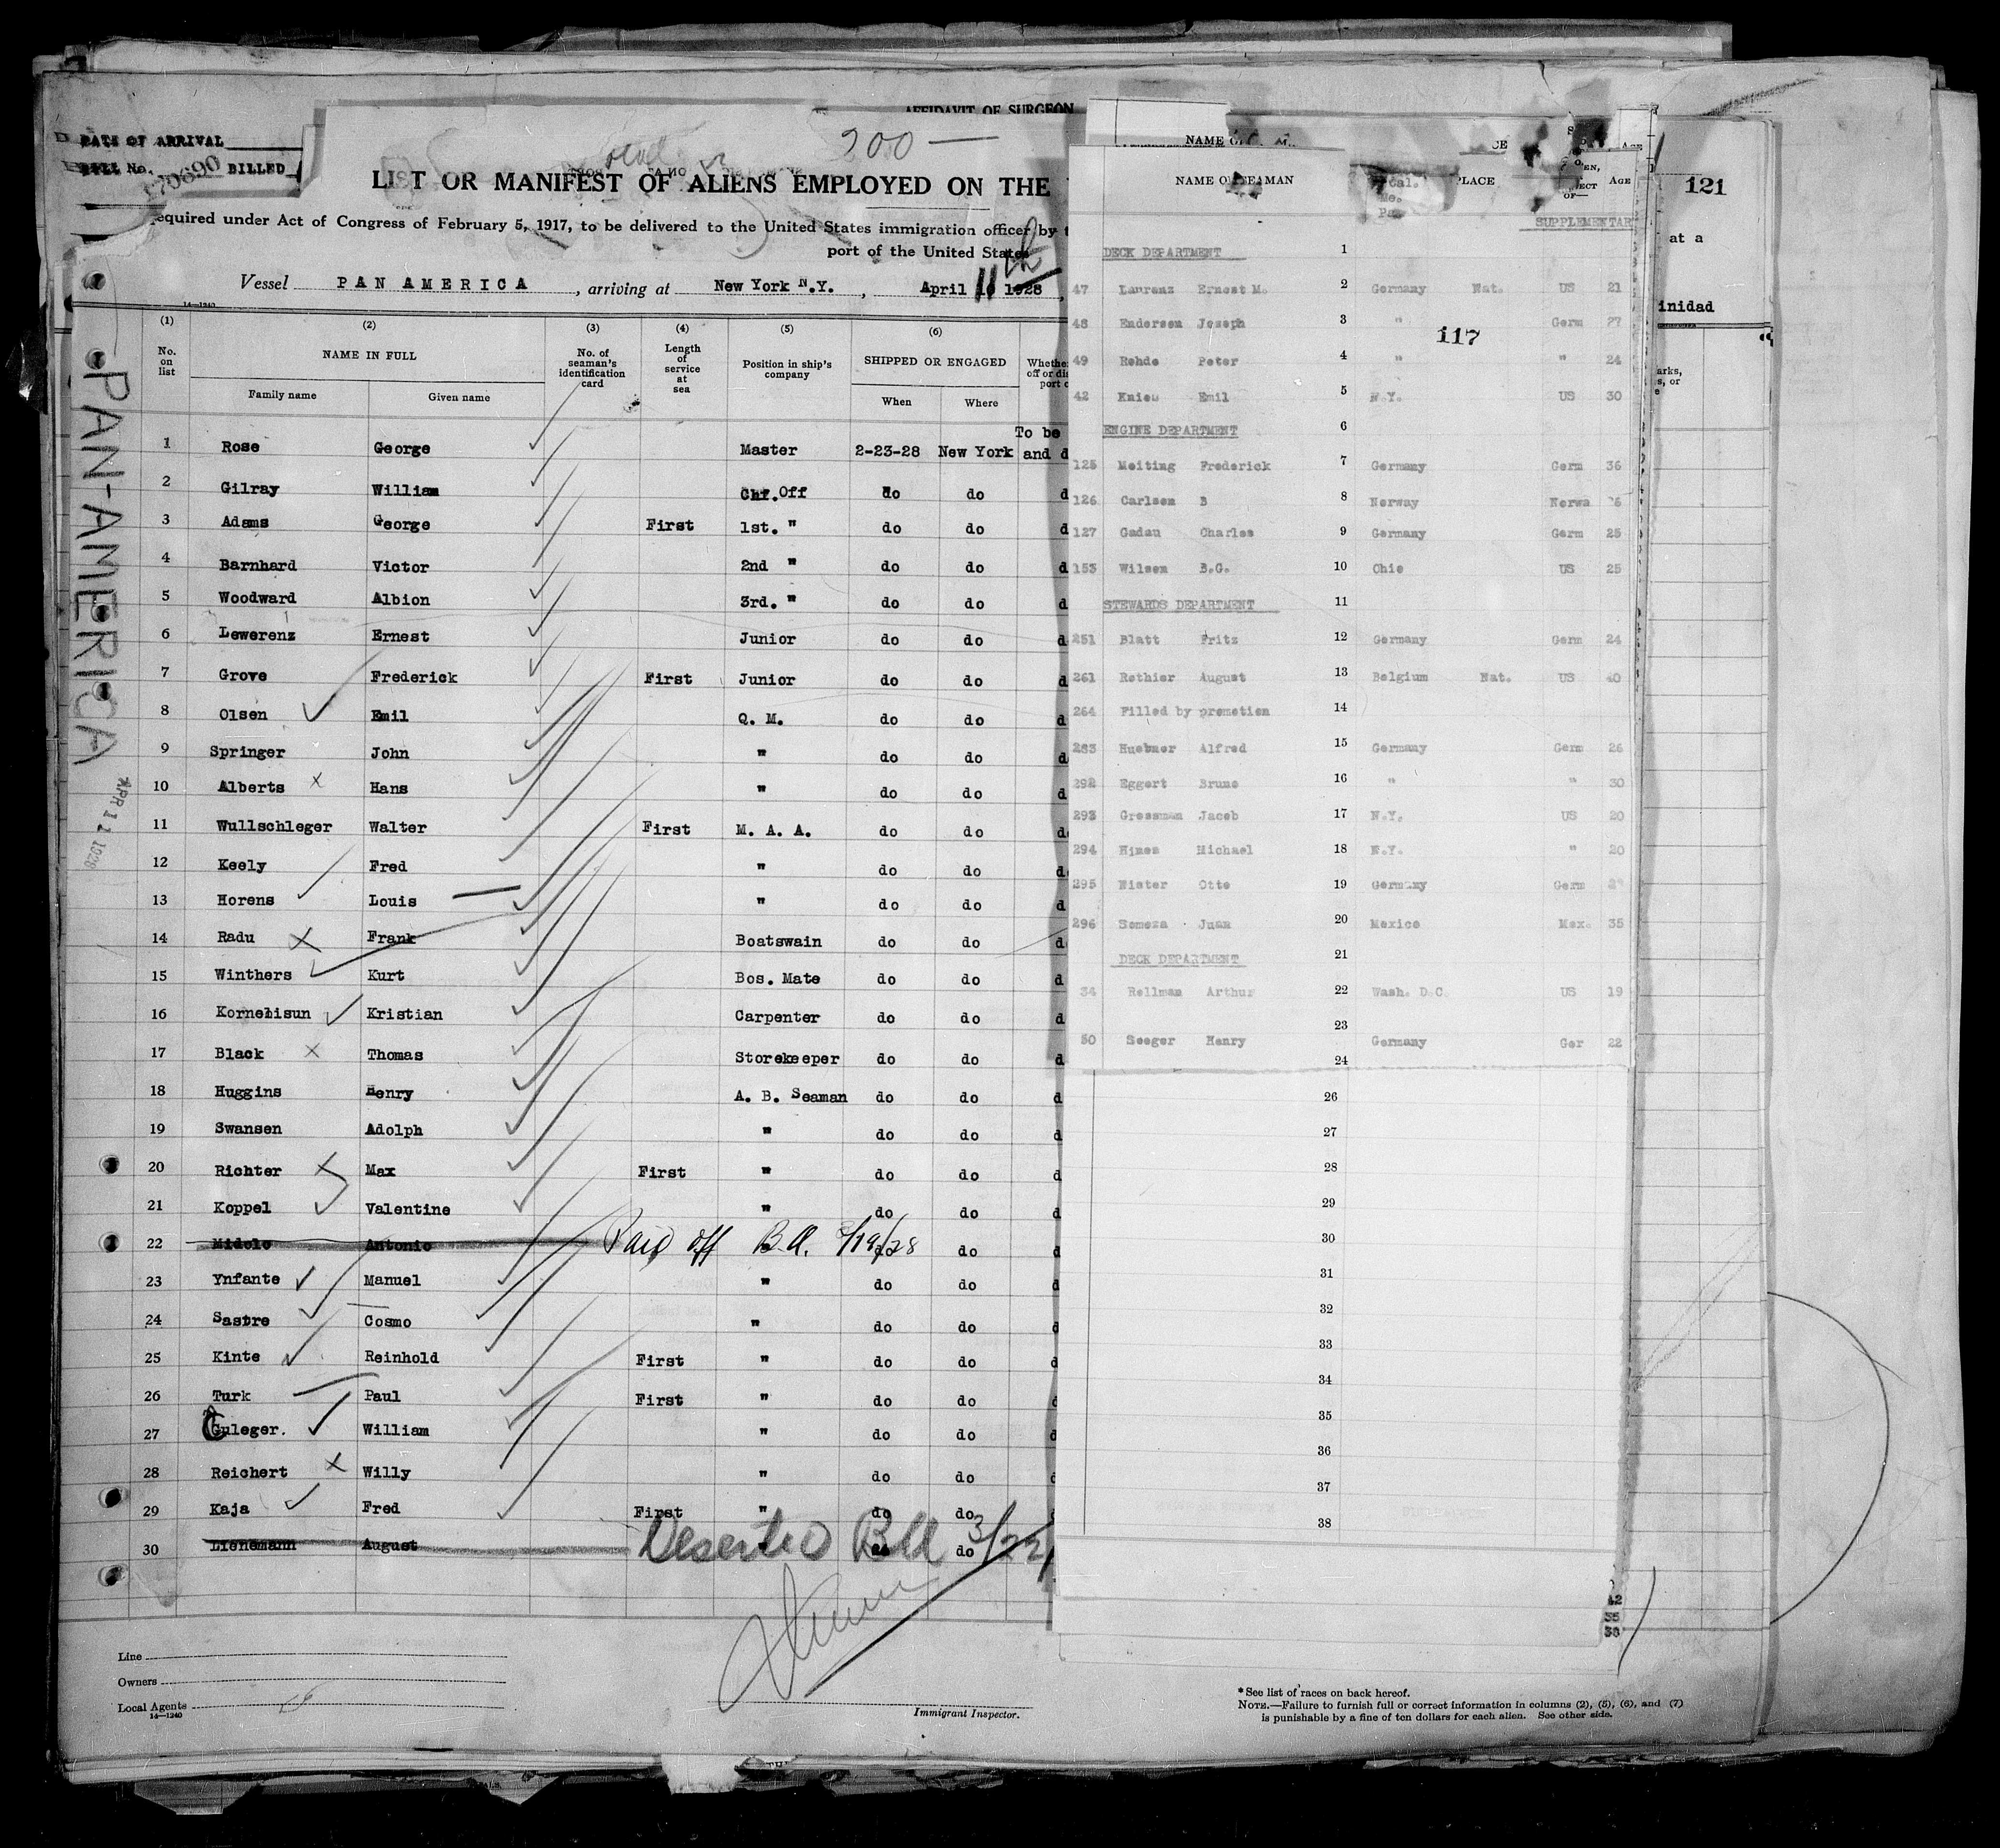 AFFIDAVIT OF SURGEON
DATE OF ARRIVAL
BILL No. 170690 BILLED
200 —
LIST OR MANIFEST OF ALIENS EMPLOYED ON THE
equired under Act of Congress of February 5, 1917, to be delivered to the United States immigration officer by
port of the United States
Vessel PAN AMERICA, arriving at New York N.Y., April 11 1928
14—1240
PAN-AMERICA
APR 11 1928
(1) (2) (3) (4) (5) (6)
No. on list NAME IN FULL No. of seaman's identification card Length of service at sea Position in ship's company SHIPPED OR ENGAGED
Family name Given name When Where
To be
1 Rose George Master 2-23-28 New York and d
2 Gilray William Chf. Off do do d
3 Adams George First 1st. " do do d
4 Barnhard Victor 2nd " do do d
5 Woodward Albion 3rd. " do do d
6 Lewerenz Ernest Junior do do d
7 Grove Frederick First Junior do do d
8 Olsen Emil Q. M. do do d
9 Springer John " do do d
10 Alberts Hans " do do d
11 Wullschleger Walter First M. A. A. do do d
12 Keely Fred " do do d
13 Horens Louis " do do d
14 Radu Frank Boatswain do do d
15 Winthers Kurt Bos. Mate do do d
16 Kornelisun Kristian Carpenter do do d
17 Black Thomas Storekeeper do do d
18 Huggins Henry A. B. Seaman do do d
19 Swansen Adolph " do do d
20 Richter Max First " do do d
21 Koppel Valentine " do do d
22 Midolo Antonio Paid off B.A. 3/19/28 do d
23 Ynfante Manuel " do do d
24 Sastre Cosmo " do do d
25 Kinte Reinhold First " do do d
26 Turk Paul First " do do d
27 Guleger. William " do do
28 Reichert Willy " do do
29 Kaja Fred First " do do
30 Lienemann August Deserted do 3/22/
Line
Owners
Local Agents
14—1240
Immigrant Inspector.
NAME OF SEAMAN PLACE AGE
SUPPLEMENTAR
DECK DEPARTMENT 1
47 Laurenz Ernest M. 2 Germany Nat. US 21
48 Endersen Joseph 3 " Germ 27
117
49 Rehde Peter 4 " " 24
42 Knieu Emil 5 N.Y. US 30
ENGINE DEPARTMENT 6
125 Meiting Frederick 7 Germany Germ 36
126 Carlsen B 8 Norway Norwa 26
127 Gadau Charles 9 Germany Germ 25
153 Wilsen B.G. 10 Ohio US 25
STEWARDS DEPARTMENT 11
251 Blatt Fritz 12 Germany Germ 24
261 Rethier August 13 Belgium Nat. US 40
264 Filled by promotion 14
283 Huebner Alfred 15 Germany Germ 26
292 Eggert Bruno 16 " " 30
293 Gressman Jacob 17 N.Y. US 20
294 Hines Michael 18 N.Y. " 20
295 Nister Otto 19 Germany Germ
296 Someza Juan 20 Mexico Mex. 35
DECK DEPARTMENT 21
34 Rellman Arthur 22 Wash. D.C. US 19
23
50 Seeger Henry Germany Ger 22
24
26
27
28
29
30
31
32
33
34
35
36
37
38
42
35
38
121
at a
inidad
arks,
s, or
*See list of races on back hereof.
NOTE.—Failure to furnish full or correct information in columns (2), (5), (6), and (7)
is punishable by a fine of ten dollars for each alien. See other side.